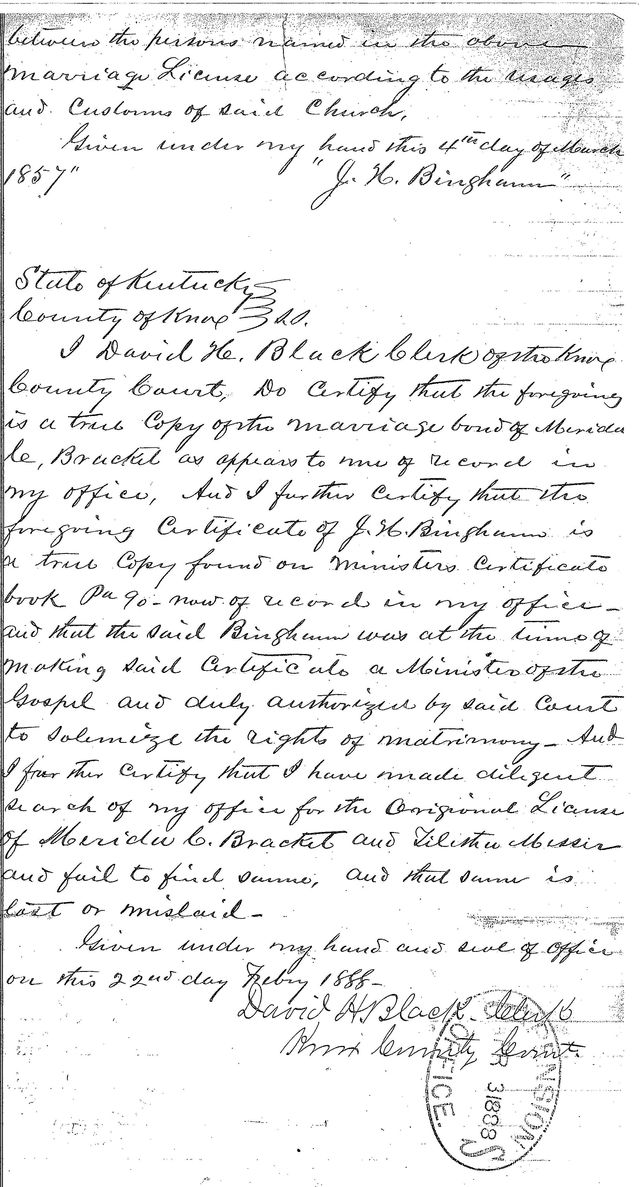 between the persons named in the above
marriage License according to the usages
and Customs of said Church,
Given under my hand this 4th day of March
1857" "J. H. Bingham"
State of Kentucky
County of Knox SS.
I David H. Black Clerk of the Knox
County Court, Do Certify that the foregoing
is a true Copy of the marriage bond of Merida
C, Bracket as appears to me of record in
my office, And I further Certify that the
foregoing Certificate of J. H. Bingham is
a true Copy found on Ministers Certificate
book Pa 90 - now of record in my office -
and that the said Bingham was at the time of
making said Certificate a Minister of the
Gospel and duly authorized by said Court
to solemize the rights of matrimony - And
I further Certify that I have made diligent
search of my office for the Origional License
of Merida C. Bracket and Tilitha Messer
and fail to find same, and that same is
lost or mislaid -
Given under my hand and seal of office
on this 22nd day Febry 1888 -
David H Black Clerk
Knox County Court.
PENSION OFFICE.
3 1888